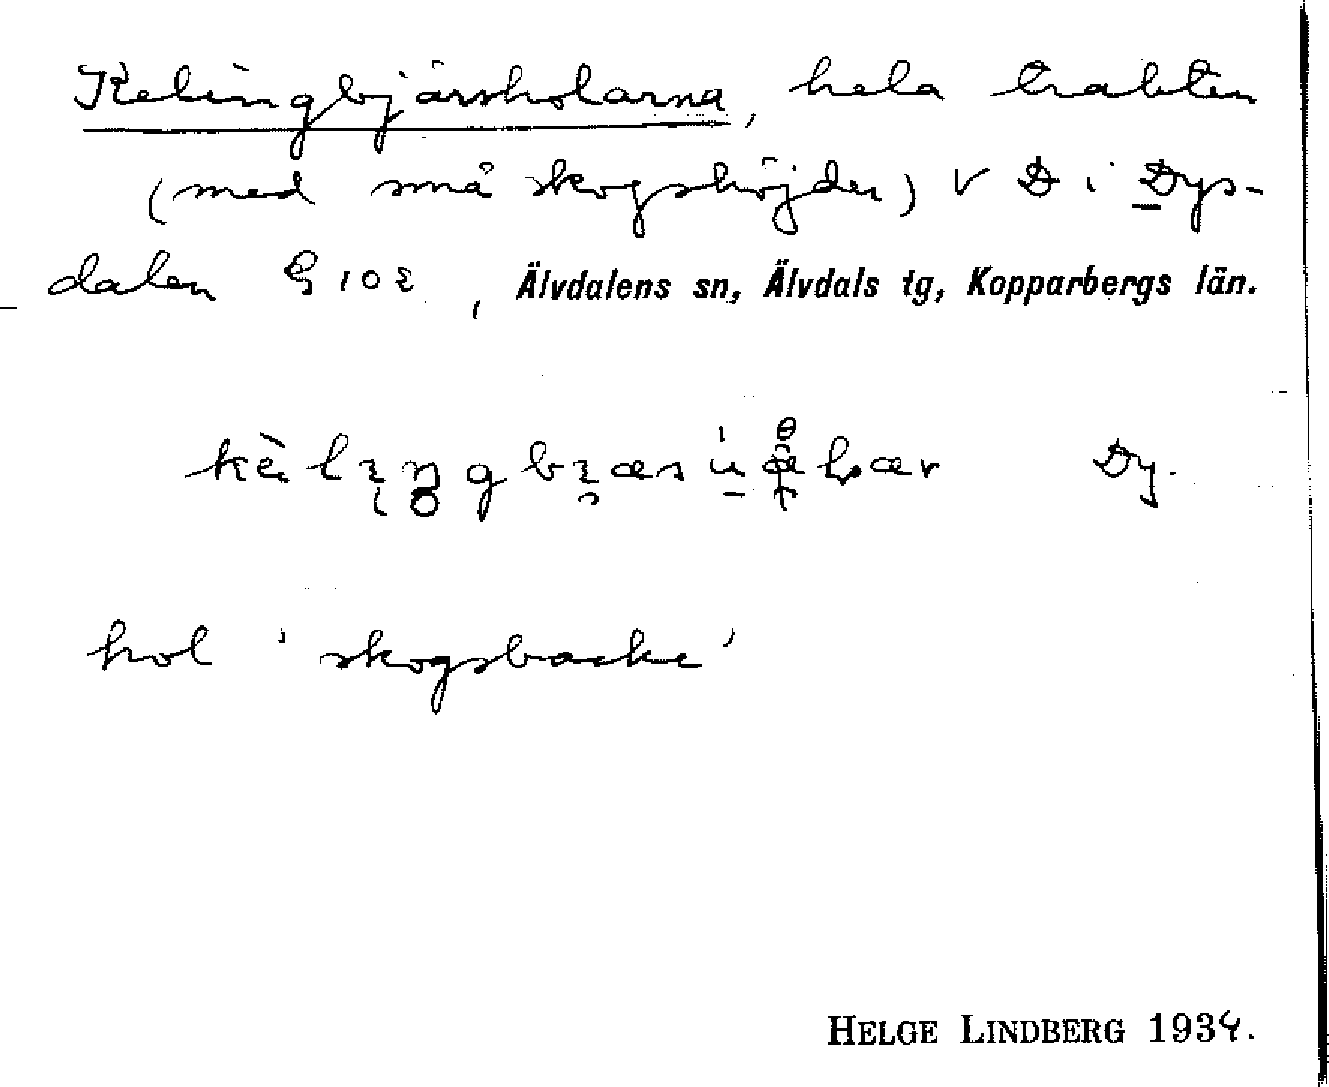 Kelingbjärsholarna, hela trakten
(med små skogshöjder) V D i Dys-
dalen G 102, Älvdalens sn, Älvdals tg, Kopparbergs län.
Dy.
hol 'skogsbacke'
HELGE LINDBERG 1934.